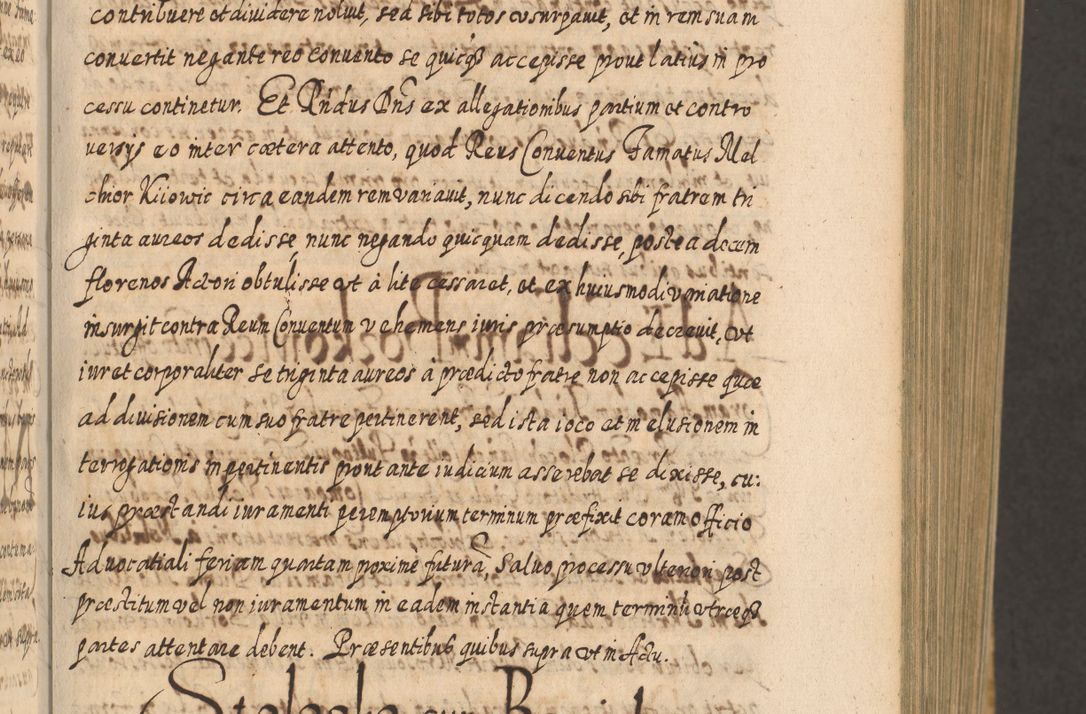 contribuere et dividere noluit, sed sibi totos usurpavit, et in rem suam
convertit negante reo convento se quicqz accepisse prout latius in pro
cessu continetur. Et Rndus Dns ex allegationibus partium et contro
versys eo inter cætera attento, quod Reus Conventus Famatus Mel
chior Kiiowic circa eandem rem variavit, nunc dicendo sibi fratrem tri
ginta aureos dedisse, nunc negando quicquam dedisse, postea decem
florenos Actori obtulisse ut à lite cessaret, et ex huiusmodi variatione
insurgit contra Reum Conventum vehemens iuris præsumptio decrevit, ut
iuret corporaliter se triginta aureos à prædicto fratre non accepisse quæ
ad divisionem cum suo fratre pertinerent, sed ista ioco et in elusionem in
terrogationis inpertinentis prout ante iudicium asserebat se dixisse, cu:
ius præstandi iuramenti peremptorium terminum præfixit coram officio
Advocatiali feriam quartam proxime futurā, Salvo processu ulteriori post
præstitum vel non iuramentum in eadem instantia quem terminū utræqz
partes attentare debent. Præsentibus quibus supra ut in Actu.
cum